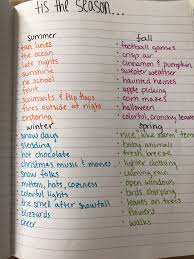 'tis the season...
summer
tan lines
the ocean
late nights
sunshine
no school
fruit
swimsuits & flip flops
fires outside at night
exploring
fall
football games
crisp air
cinnamon & pumpkin
sweater weather
haunted houses
apple picking
corn mazes
halloween
colorful, crunchy leaves
winter
snow days
sledding
hot chocolate
christmas music & movies
snow folks
mittens, hats, coziness
colorful lights
the smell after snowfall
blizzards
cheer
spring
"nice", blue
baby animals
fresh breeze
lighter clothing
calming rain
open windows
birds
leaves on trees
flowers
walks